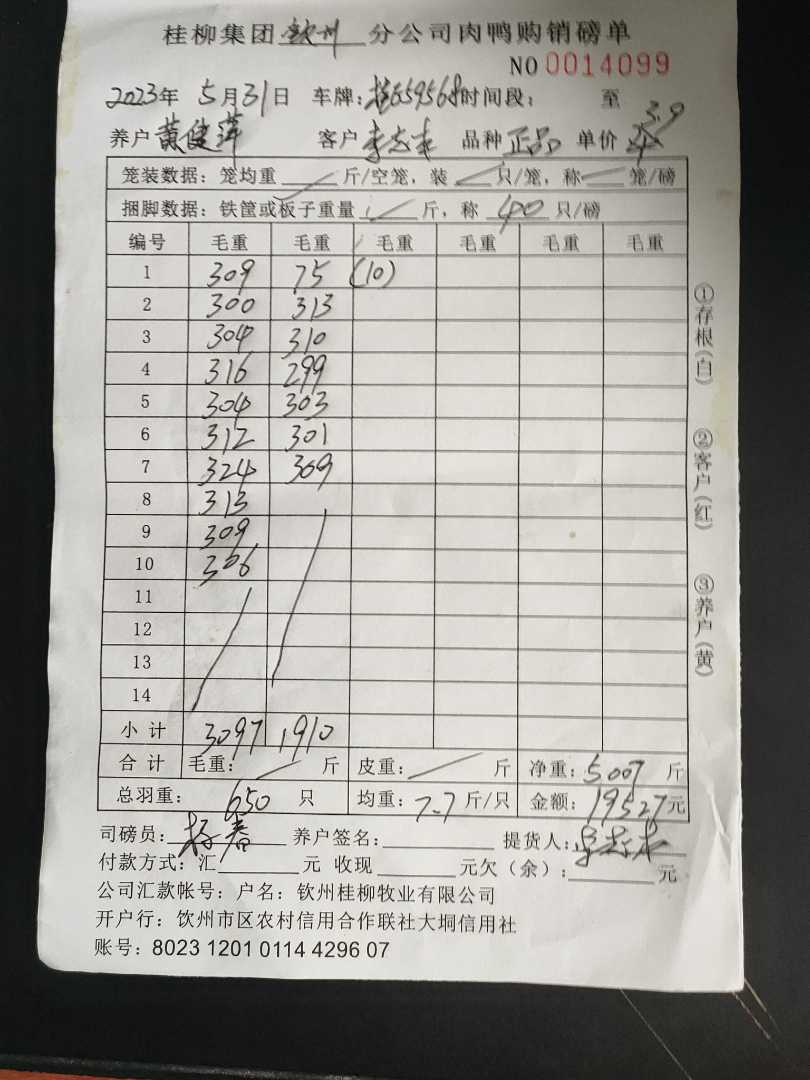 桂柳集团钦州分公司肉鸭购销磅单
NO 0014099
2023年 5月31日 车牌: 659568 时间段: 至
3.9
养户 黄健萍 客户 品种 正品 单价
笼装数据: 笼均重 斤/空笼, 装 只/笼, 称 笼/磅
捆脚数据: 铁筐或板子重量 斤, 称 40 只/磅
编号 毛重 毛重 毛重 毛重 毛重 毛重
1 309 75 (10)
2 300 313
3 304 310
4 316 299
5 304 303
6 312 301
7 324 309
8 313
9 309
10 306
11
12
13
14
小计 3097 1910
合计 毛重: 斤 皮重: 斤 净重: 5007 斤
总羽重: 650 只 均重: 7.7 斤/只 金额: 19527 元
司磅员: 杨春 养户签名: 提货人:
付款方式: 汇 元 收现 元欠(余): 元
公司汇款帐号: 户名: 钦州桂柳牧业有限公司
开户行: 钦州市区农村信用合作联社大垌信用社
账号: 8023 1201 0114 4296 07
①存根(白)
②客户(红)
③养户(黄)